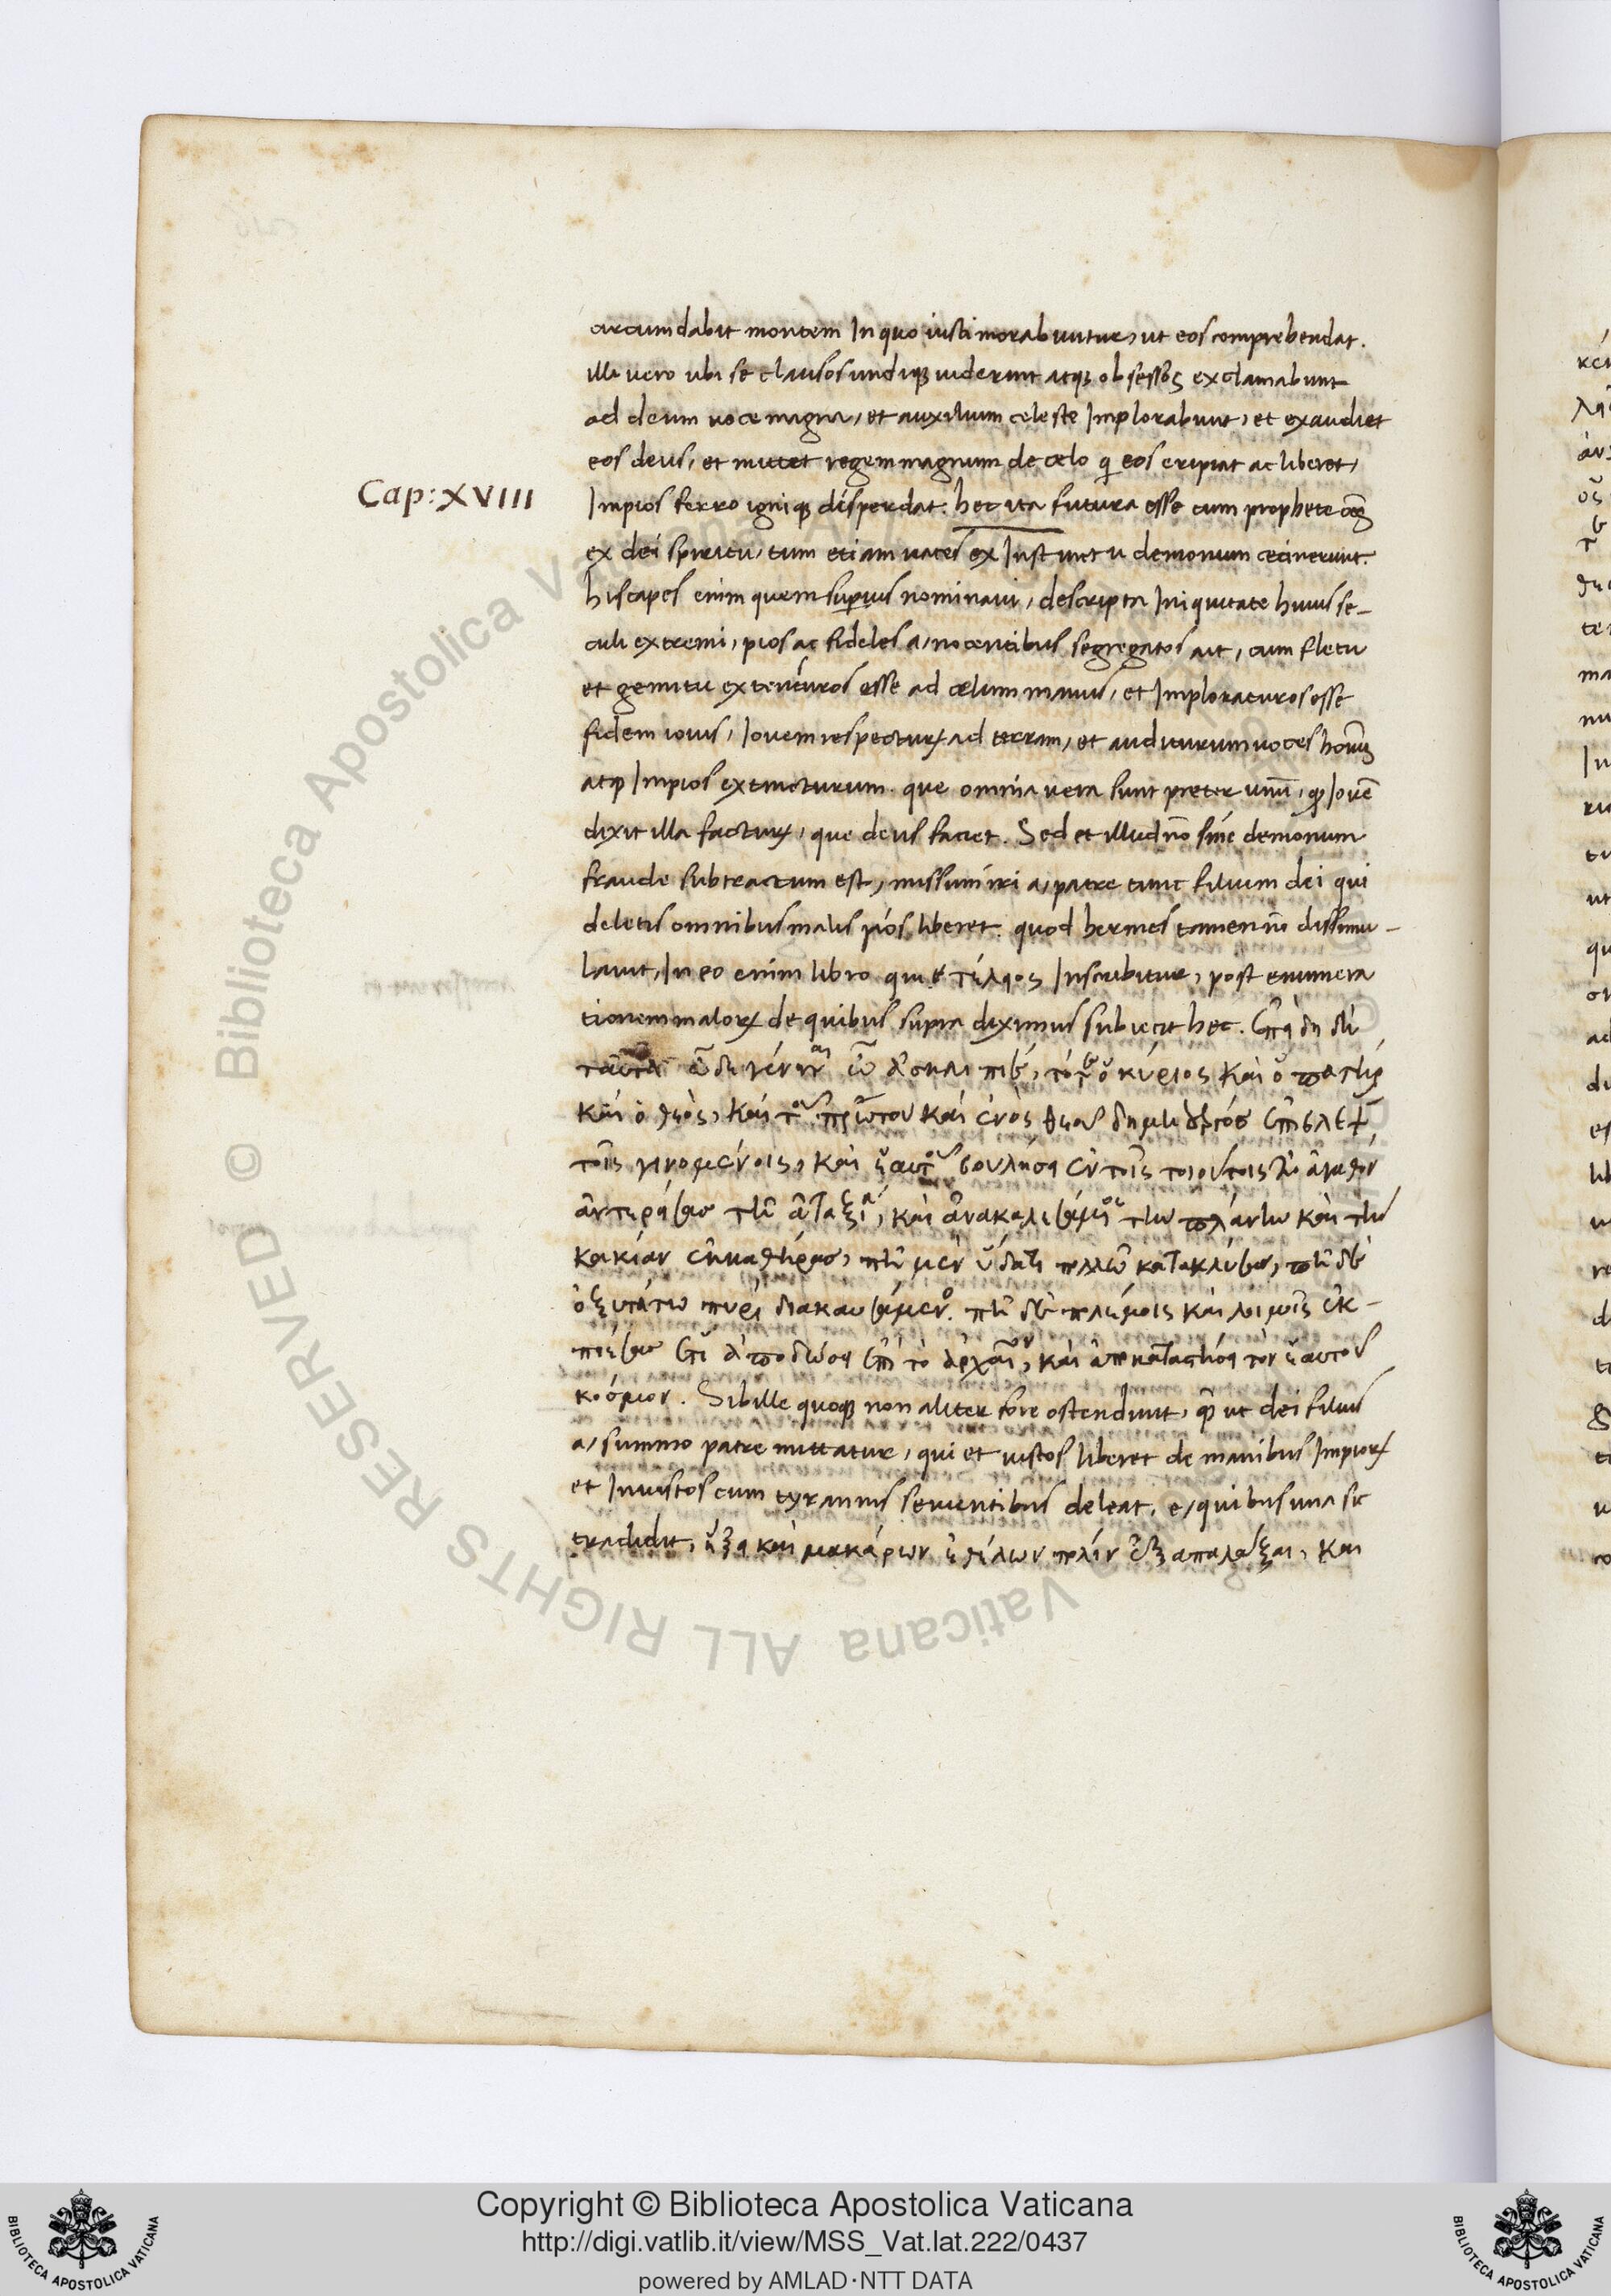 circumdabit montem In quo iusti morabuntur, ut eos comprehendat.
illi vero ubi se clausos undiqꝫ uiderint atqꝫ obsessos exclamabunt
ad deum uoce magna, et auxilium celeste Implorabunt, et exaudiet
eos deus, et mittet regem magnum de celo qͥ eos eripiat ac liberet,
Cap: XVIII
Impios ferro igniqꝫ disperdat. hec ita futura esse cum prophete oēs
ex dei spiritu, tum etiam uates ex Instinctu demonum cecinerunt.
hiscapes enim quem superius nominaui, descripta Iniquitate huius se-
culi extremi, pios ac fideles a, nocentibus segregatos ait, cum fletu
et gemitu extensuros esse ad celum manus, et Imploraturos esse
fidem iouis, Iouem respecturꝝ ad terram, et auditurum uoces homꝫ
atqꝫ Impios extincturum. que omnia uera sunt preter unū, qꝫ Iouē
dixit illa facturꝝ, que deus faciet. Sed et illud nō sine demonum
fraude subtractum est, missum iri a, patre tunc filium dei qui
deletis omnibus malis pios liberet. quod hermes tamen nō dissimu-
lauit, In eo enim libro qui τέλειος Inscribitur, post enumera
tionem malorꝝ de quibus supra diximus subiecit hec. ἐπὰ δὴ δὲ
ταῦτα ὦ ἀσκλιπιέ, ὁ κύριος καὶ ὁ πατὴρ
καὶ ὁ θεὸς, καὶ τοῦ πρώτου καὶ ἑνὸς θεοῦ
τοῖς γινομένοις, καὶ ἑαυτοῦ βουλήση ἐν τοῖς τοιούτοις ἀγαθὸν
ἀνταράψας τὴν ἀταξίαν, καὶ ἀνακαλεψάμενος τὴν πλάνην καὶ τὴν
κακίαν ἐκκαθήρας, πῆ μὲν ὕδατι πολλῶ κατακλύψας, πῆ δὲ
ὀξυτάτω πυρὶ διακαυψάμενος. πῆ δὲ πολέμοις καὶ λοιμοῖς ἐκ-
ἐπὶ τὸ ἀρχαῖον, καὶ ἀποκαταστήση τὸν ἑαυτοῦ
κόσμον. Sibille quoqꝫ non aliter fore ostendunt, qͣ ut dei filius
a, summo patre mittatur, qui et iustos liberet de manibus Impiorꝝ
et Iniustos cum tyrannis seuientibus deleat, e, quibus una sic
tradidit, ἥξα καὶ μακάρων ἐθέλων πόλιν ἐξαπαλάξαι, και
Copyright © Biblioteca Apostolica Vaticana
http://digi.vatlib.it/view/MSS_Vat.lat.222/0437
powered by AMLAD·NTT DATA